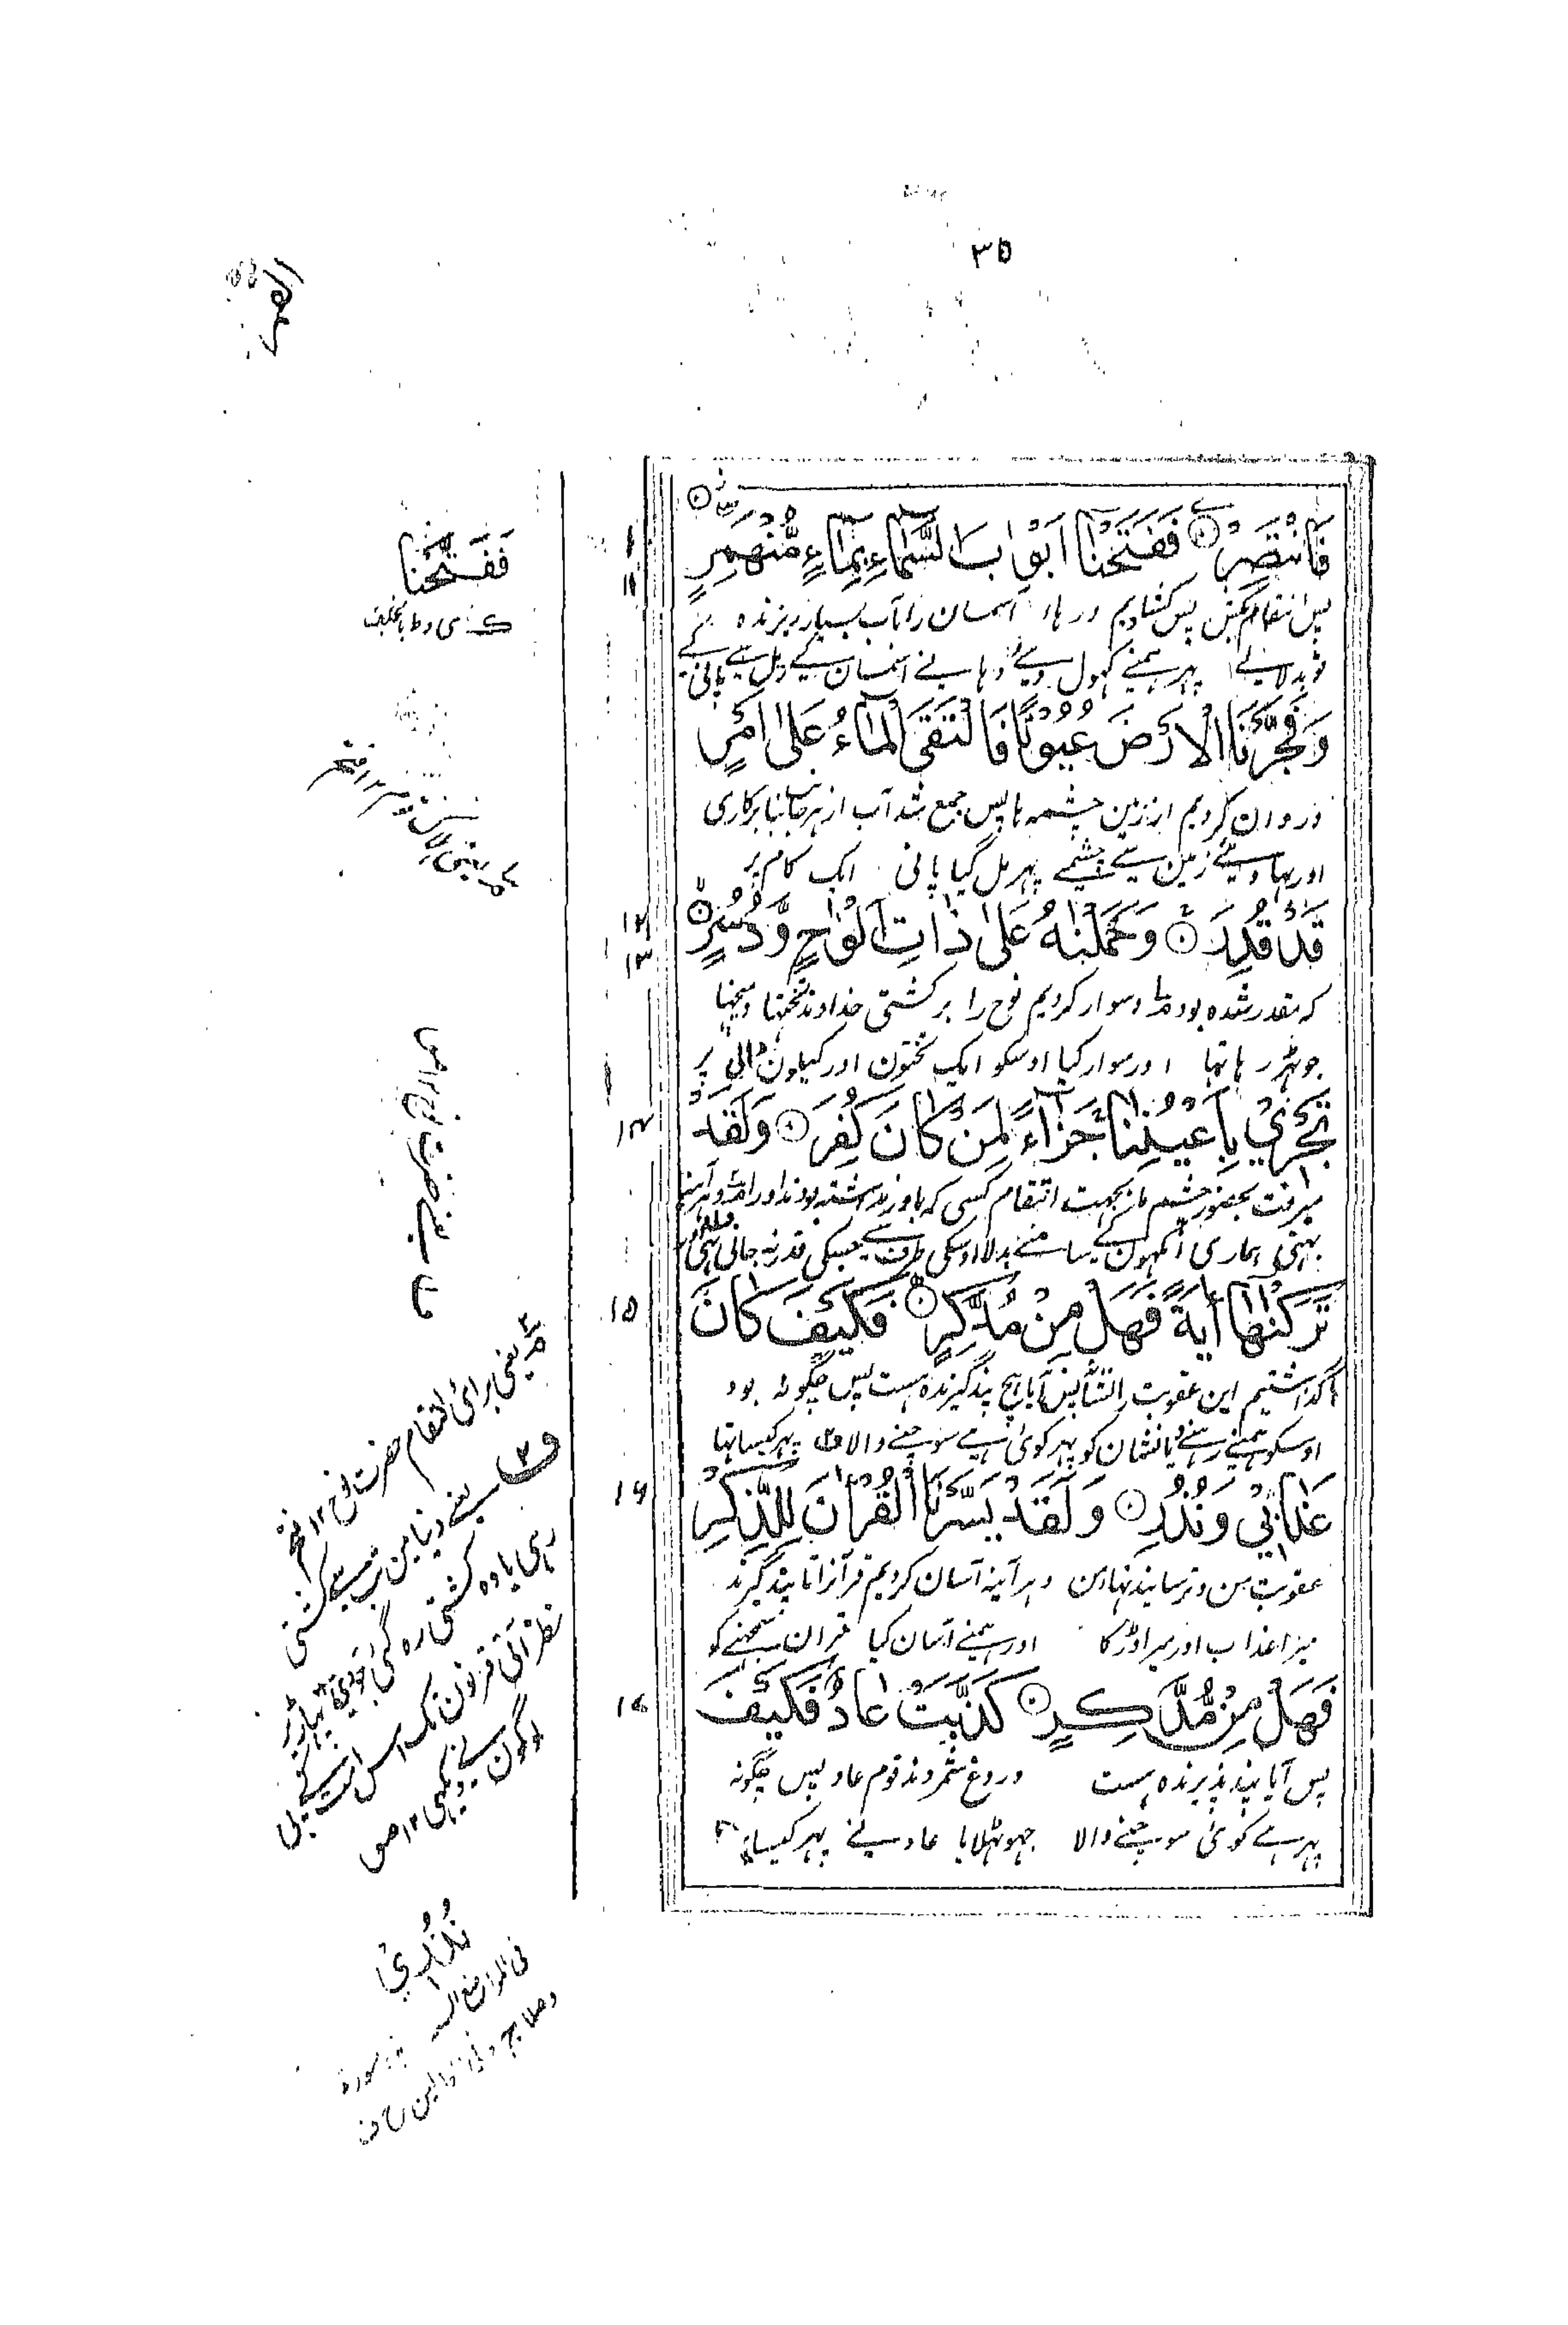 ٣٥
القمر
فَانْتَصِرْ ۞ فَفَتَحْنَا اَبْوَابَ السَّمَاءِ بِمَاءٍ مُّنْهَمِرٍ ۞
پس انتقام بکش پس کشادیم درهاء آسمان را بآب بسیار ریزنده
تو بدلا لے پہر ہمنے کہول دیئے دہانے آسمان کے ریل سے پانی کے
وَفَجَّرْنَا الْاَرْضَ عُيُوْنًا فَالْتَقَى الْمَاءُ عَلٰى اَمْرٍ
و روان کردیم از زمین چشمہ ہا پس جمع شد آب از ہر جانب بنابر کاری
اور بہا دیئے زمین سے چشمے پہر مل گیا پانی ایک کام پر
١٢
قَدْ قُدِرَ ۞ وَحَمَلْنٰهُ عَلٰى ذَاتِ اَلْوَاحٍ وَّدُسُرٍ ۞
١٣
کہ مقدر شدہ بود و سوار کردیم نوح را بر کشتی خداوند تختہا و میخہا
جو ٹہر رہا تہا اور سوار کیا اوسکو ایک تختون اور کیلون والی پر
تَجْرِيْ بِاَعْيُنِنَا جَزَاءً لِّمَنْ كَانَ كُفِرَ ۞ وَلَقَدْ
١٤
میرفت بحضور چشم ما بجہت انتقام کسی کہ باور نداشتہ بودند او را و ہر آئینہ
بہتی ہماری آنکہون کے سامنے بدلا اوسکی طرف سے جسکی قدر نہ جانی تہی
تَرَكْنٰهَا اٰيَةً فَهَلْ مِنْ مُّدَّكِرٍ ۞ فَكَيْفَ كَانَ
١٥
گذاشتیم این عقوبت را نشانہ پس آیا ہیچ پند گیرندہ ہست پس چگونہ بود
اوسکو ہمنے رہنے دیا نشان کو پہر کوئی ہے سوچنے والا ف٣ پہر کیسا تہا
عَذَابِيْ وَنُذُرِ ۞ وَلَقَدْ يَسَّرْنَا الْقُرْاٰنَ لِلذِّكْرِ
١٦
عقوبت من و ترسانیدنہای من و ہر آینہ آسان کردیم قرآنرا تا پند گیرند
میرا عذاب اور میرا ڈر کا اور ہمنے آسان کیا قران سمجہنے کو
فَهَلْ مِنْ مُّدَّكِرٍ ۞ كَذَّبَتْ عَادٌ فَكَيْفَ
١٧
پس آیا پند پذیرندہ ہست دروغ شمردند قوم عاد پس چگونہ
پہر ہے کوئی سوچنے والا جہوٹہلایا عاد نے پہر کیسا
فَفَتَّحْنَا
یعنی برائ انتقام حضرت نوح ١٢ فتح
ف٣ یعنے دنیا مین تب سے کشتی
رہی یا وہ کشتی رہ گئی جودی پہاڑ پر
نظر آتی قرنون تک اس امت کے بہی
لوگون نے دیکہی ١٢ موض
نُذُرِيْ